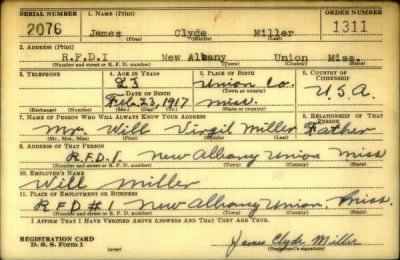 SERIAL NUMBER 1. NAME (Print) ORDER NUMBER
2076 James Clyde Miller 1311
(First) (Middle) (Last)
2. ADDRESS (Print)
R.F.D.I New Albany Union Miss.
(Number and street or R. F. D. number) (Town) (County) (State)
3. TELEPHONE 4. AGE IN YEARS 5. PLACE OF BIRTH 6. COUNTRY OF CITIZENSHIP
23 Union Co. U.S.A.
DATE OF BIRTH (Town or county)
Feb. 23, 1917 Miss.
(Exchange) (Number) (Mo.) (Day) (Yr.) (State or country)
7. NAME OF PERSON WHO WILL ALWAYS KNOW YOUR ADDRESS 8. RELATIONSHIP OF THAT PERSON
Mr. Will Virgil Miller Father
(Mr., Mrs., Miss) (First) (Middle) (Last)
9. ADDRESS OF THAT PERSON
R.F.D.1. New Albany Union Miss
(Number and street or R. F. D. number) (Town) (County) (State)
10. EMPLOYER'S NAME
Will Miller
11. PLACE OF EMPLOYMENT OR BUSINESS
RFD #1 New Albany Union, Miss.
(Number and street or R. F. D. number) (Town) (County) (State)
I AFFIRM THAT I HAVE VERIFIED ABOVE ANSWERS AND THAT THEY ARE TRUE.
REGISTRATION CARD
D. S. S. Form 1 James Clyde Miller
(Registrant's signature)